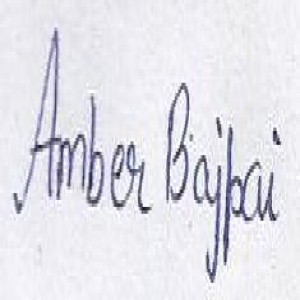 Amber Bajpai